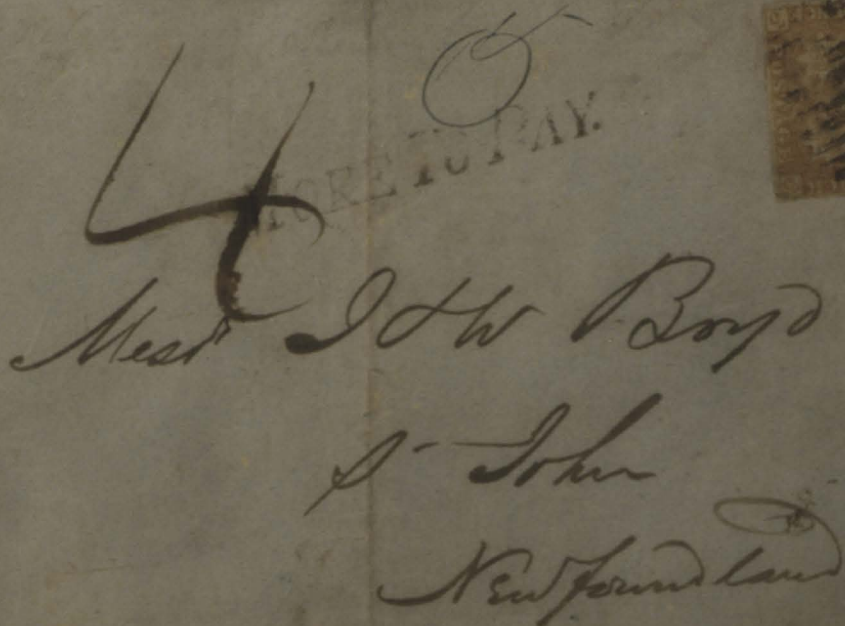 4
MORE TO PAY.
Messrs J & W Boyd
St John
Newfoundland